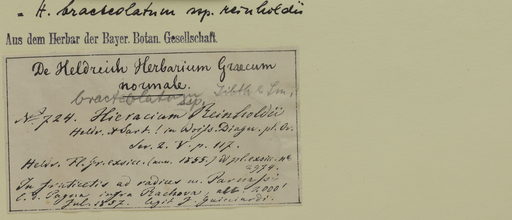 = H. bracteolatum ssp. reinholdii
Aus dem Herbar der Bayer. Botan. Gesellschaft.
De Heldreich Herbarium Graecum
normale.
bracteolatum Sibth & Sm.
ssp.
No. 724. Hieracium Reinholdii
Heldr. & Sart.! in Boiss. Diagn. pl. Or.
Ser. 2. V. p. 117.
Heldr. Fl. gr. exsicc. (ann. 1855.) & pl. exsic. No
In fruticetis ad radices m. Parnassi
infra Rachova, alt. 2000'
Jul. 1857. legit J. Guicciardi.